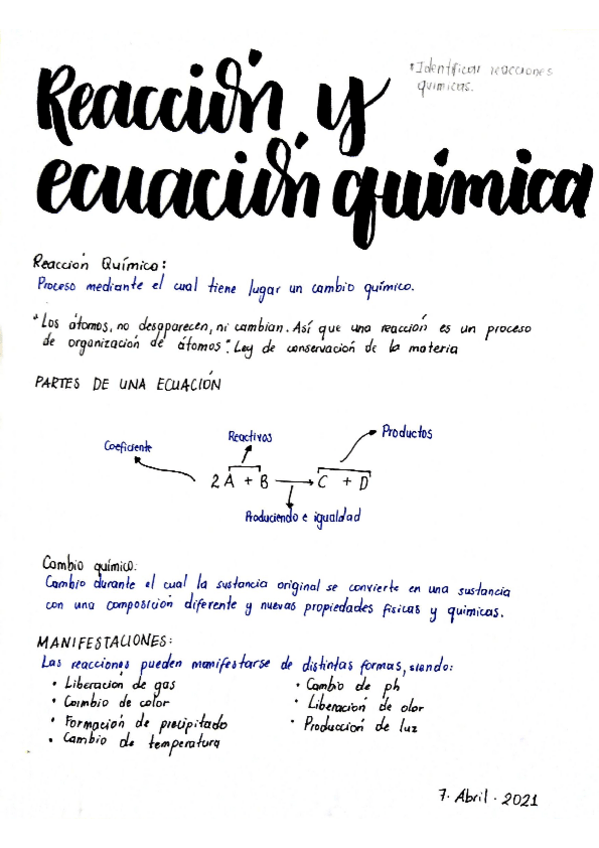 Reacción y
*Identificar reacciones
químicas.
ecuación química
Reacción Química:
Proceso mediante el cual tiene lugar un cambio químico.
"Los átomos, no desaparecen, ni cambian. Así que una reacción es un proceso
de organización de átomos": Ley de conservación de la materia
PARTES DE UNA ECUACIÓN
Coeficiente
Reactivos
Productos
2A + B → C + D
Produciendo e igualdad
Cambio químico:
Cambio durante el cual la sustancia original se convierte en una sustancia
con una composición diferente y nuevas propiedades físicas y químicas.
MANIFESTACIONES:
Las reacciones pueden manifestarse de distintas formas, siendo:
• Liberación de gas
• Cambio de color
• Formación de precipitado
• Cambio de temperatura
• Cambio de ph
• Liberación de olor
• Producción de luz
7. Abril. 2021